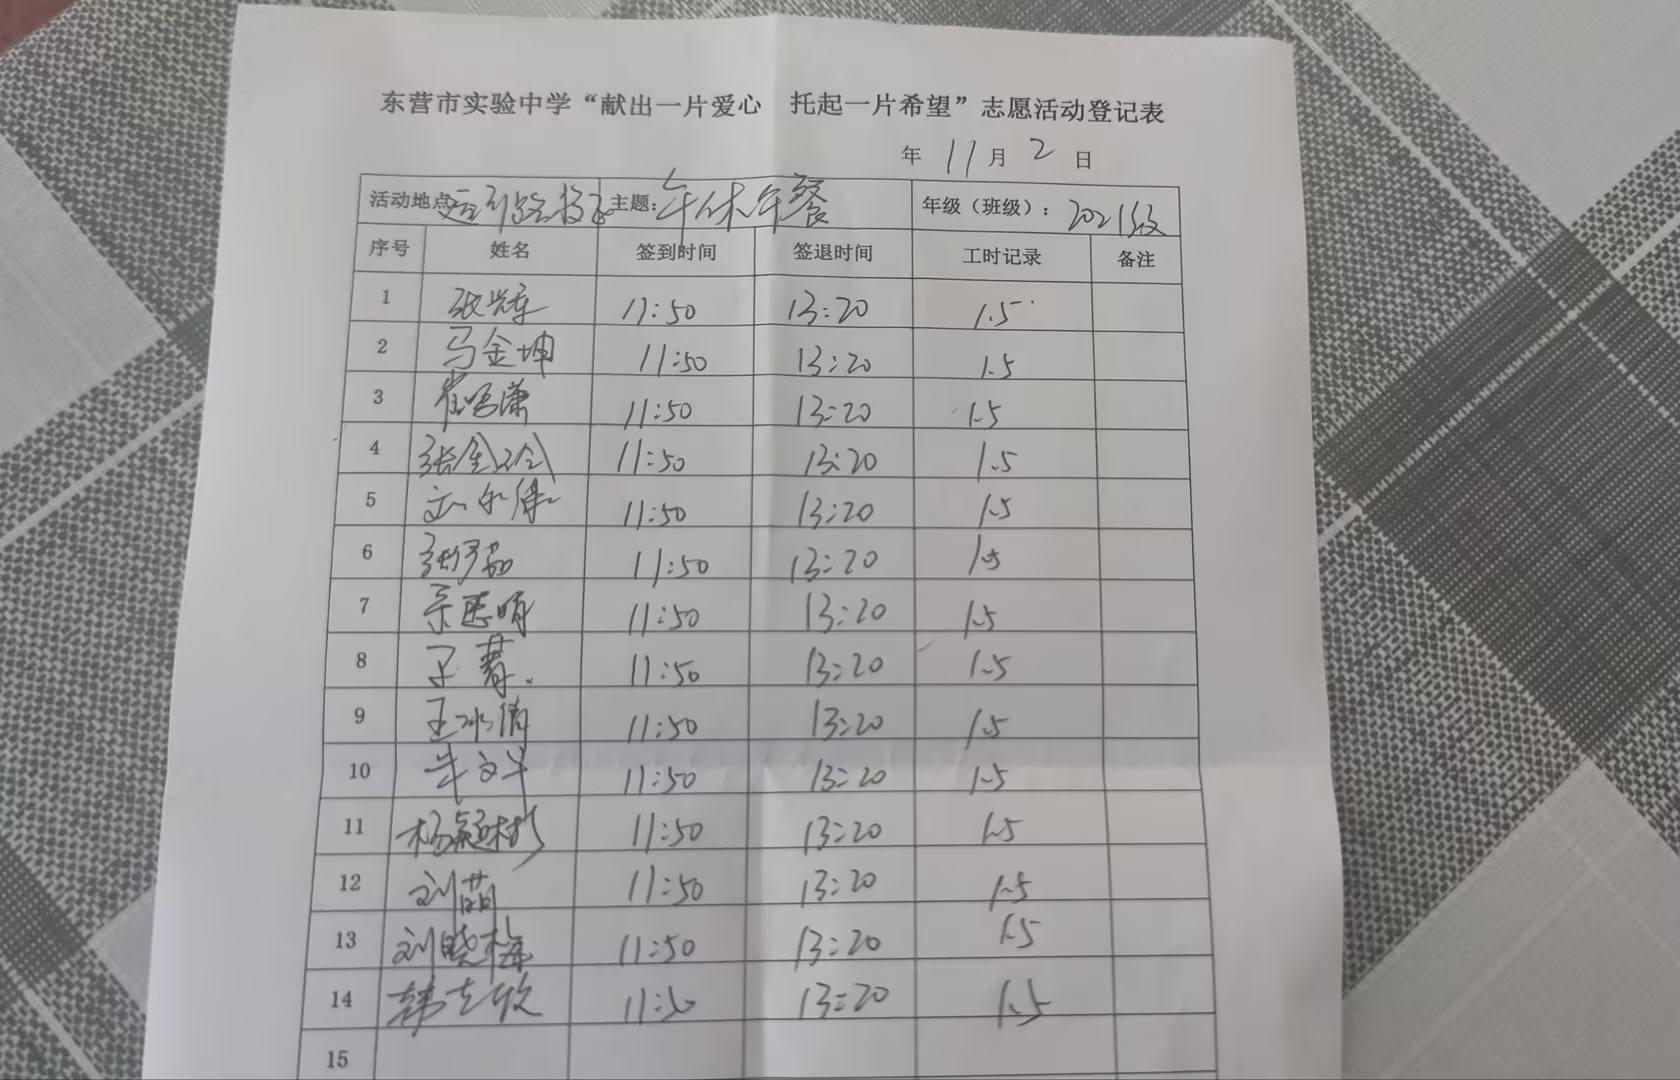 东营市实验中学“献出一片爱心 托起一片希望”志愿活动登记表
年 11 月 2 日
活动地点 主题：午休午餐 年级（班级）：2021级
序号 姓名 签到时间 签退时间 工时记录 备注
1 11:50 13:20 1.5
2 马金坤 11:50 13:20 1.5
3 11:50 13:20 1.5
4 11:50 13:20 1.5
5 11:50 13:20 1.5
6 11:50 13:20 1.5
7 11:50 13:20 1.5
8 11:50 13:20 1.5
9 王冰倩 11:50 13:20 1.5
10 11:50 13:20 1.5
11 11:50 13:20 1.5
12 刘萌 11:50 13:20 1.5
13 刘晓梅 11:50 13:20 1.5
14 11:50 13:20 1.5
15